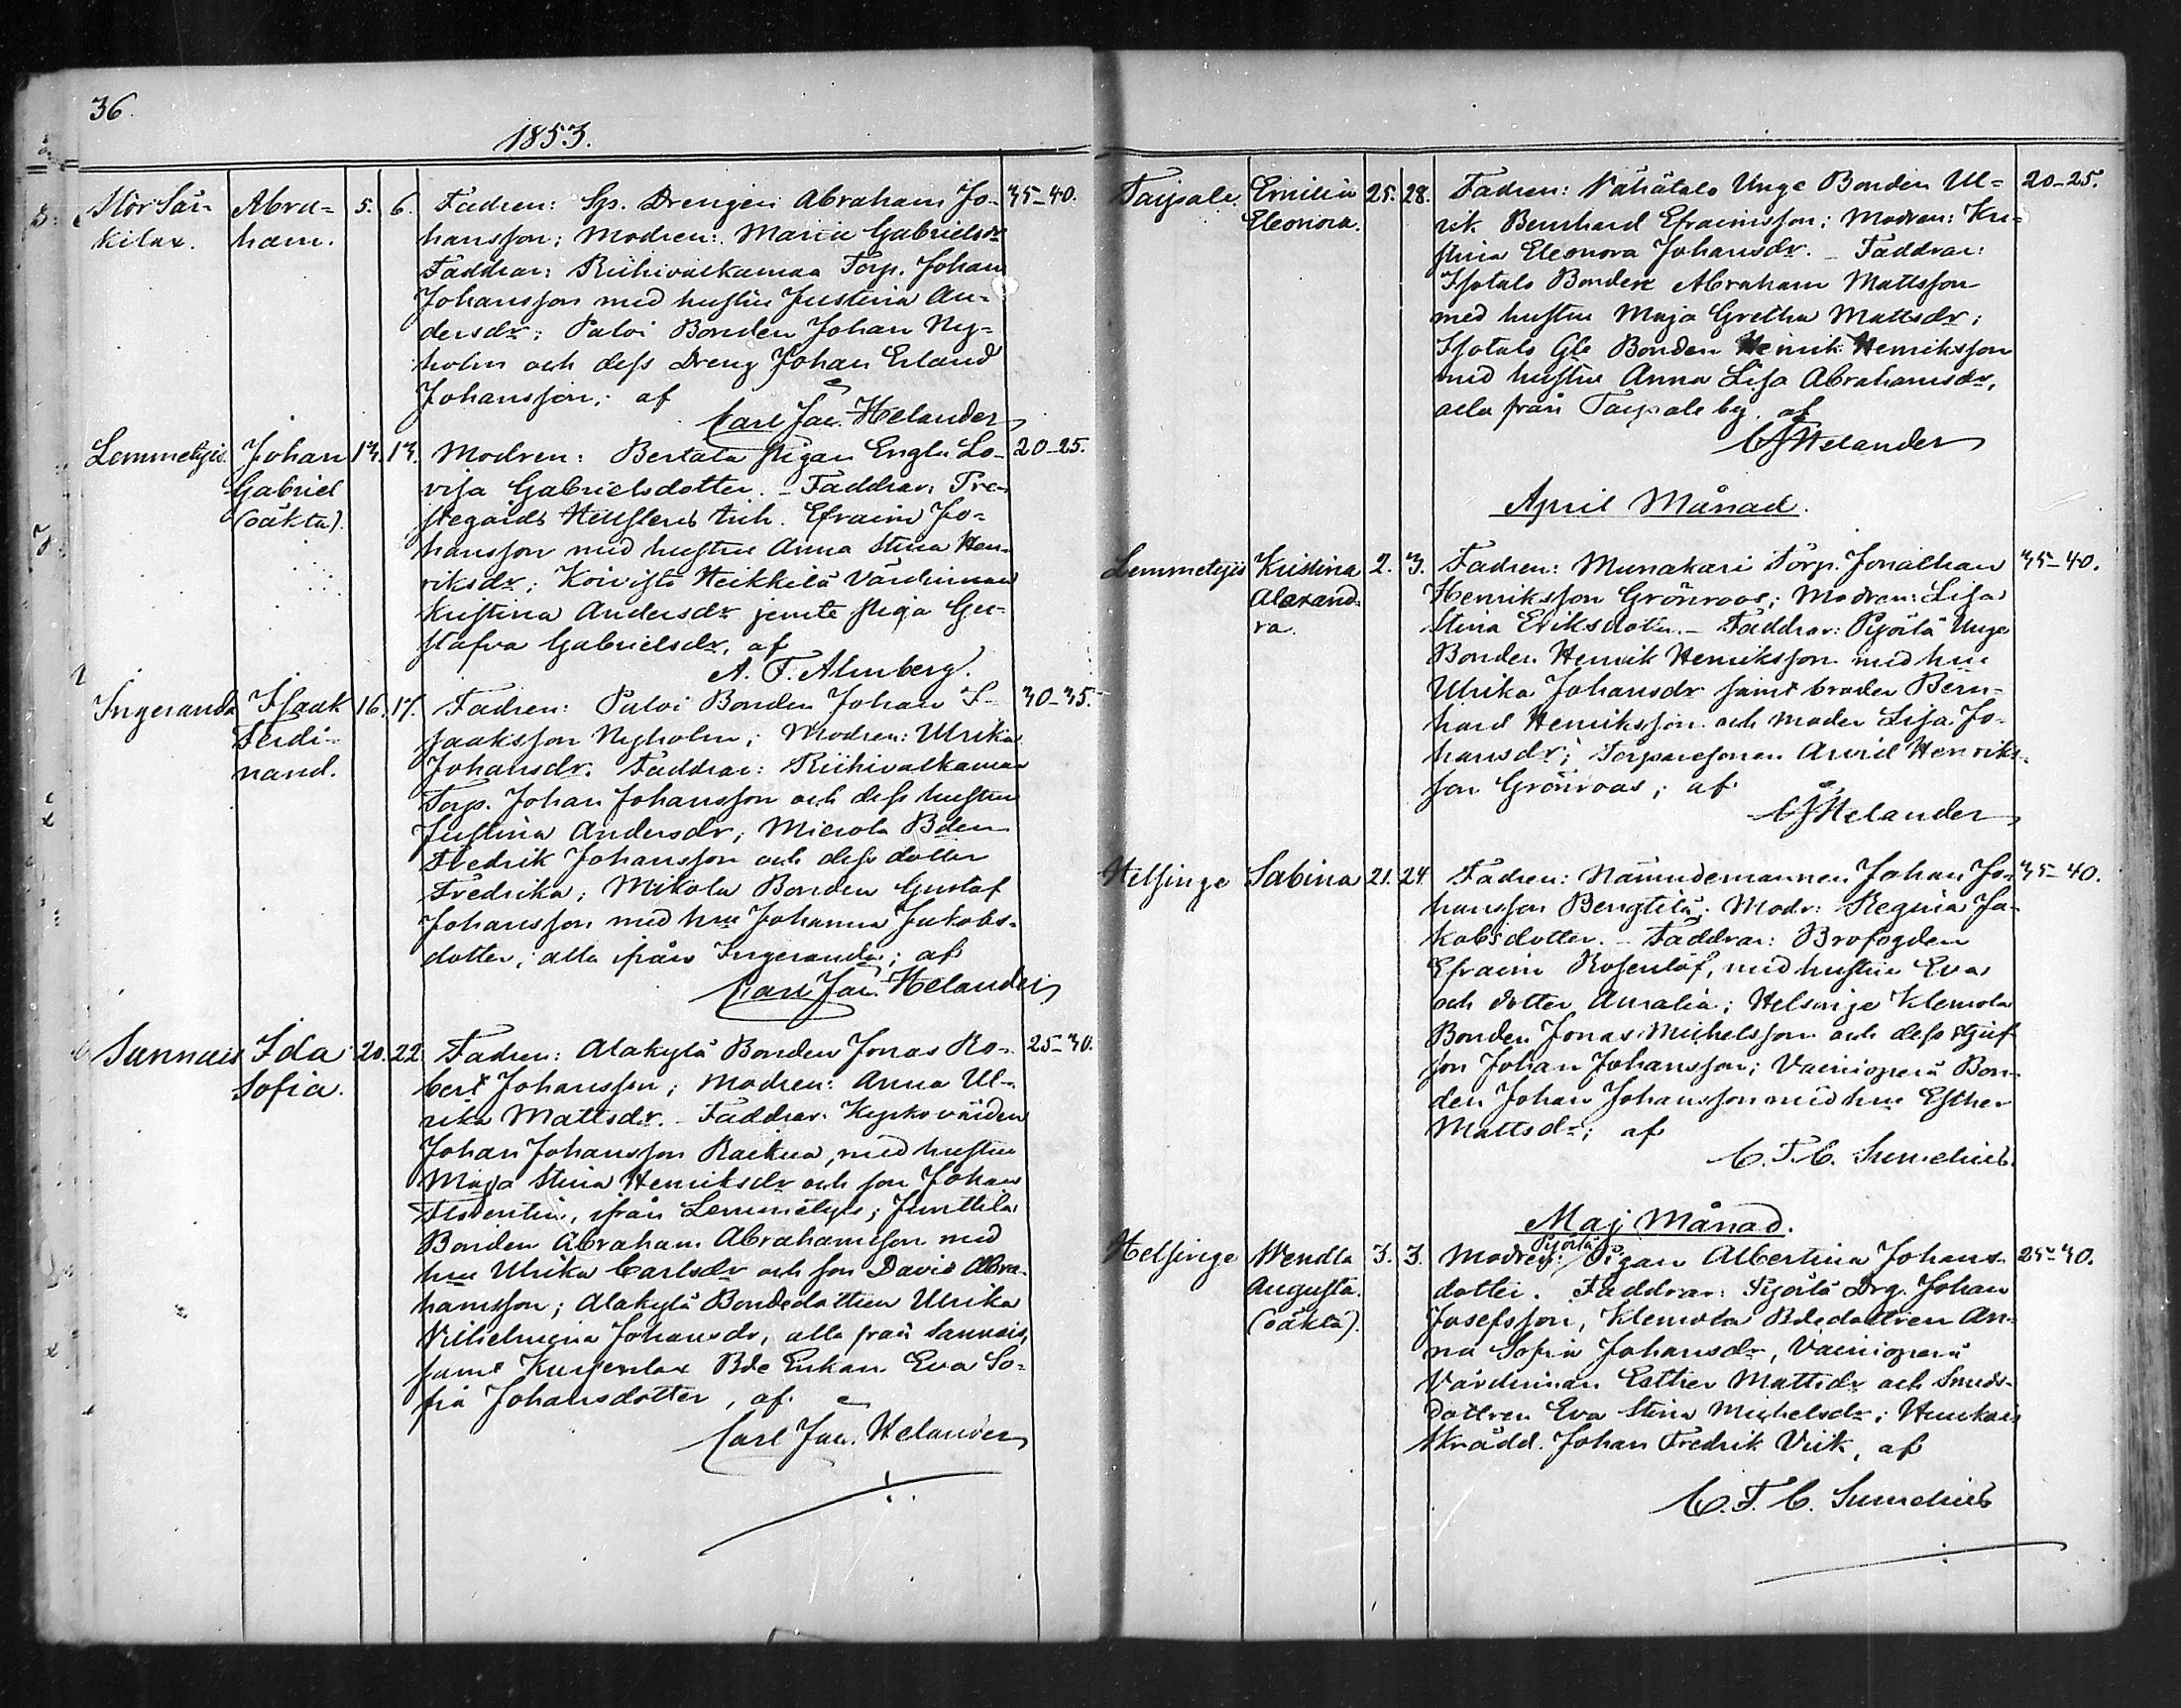 36.
1853.
Stor Sär-
kilax.
Abra-
ham.
5. 6.
Fadren: Sjs. Drengen Abraham Jo-
hansson; Modren: Maria Gabrielsdr
Faddrar: Riihivalkamaa Torp. Johan
Johansson med hustru Justina An-
dersdr; Paloi Bonden Johan Ny-
holm och dess Dreng Johan Erland
Johansson; af
Carl Jac. Helander
35-40.
Lemmetyis.
Johan
Gabriel
(oäkta).
13. 13.
Modren: Bertala Pigan Engla Lo-
visa Gabrielsdotter. - Faddrar: Pre-
stegårds Inh. Efraim Jo-
hansson med hustru Anna Stina Hen-
riksdr; Koivisto Heikkilä Värdinnan
Kristina Andersdr jemte Piga Gu-
stafva Gabrielsdr, af
A. F. Almberg.
20-25.
Ingeranda
Isaak
Ferdi-
nand.
16. 17.
Fadren: Paloi Bonden Johan I-
saaksson Nyholm; Modren: Ulrika
Johansdr. Faddrar: Riihivalkamaa
Torp. Johan Johansson och dess hustru
Justina Andersdr; Mickola Bden
Fredrik Johansson och dess dotter
Fredrika; Mikola Bonden Gustaf
Johansson med hru Johanna Jakobs-
dotter; alla ifrån Ingeranda; af
Carl Jac. Helander
30-35.
Sannais
Ida
Sofia.
20. 22.
Fadren: Alakylä Bonden Jonas Ro-
bert Johansson; Modren: Anna Ul-
rika Mattsdr. - Faddrar: Kyrkovärden
Johan Johansson Raikua, med hustru
Maja Stina Henriksdr och son Johan
Florentin, ifrån Lemmetyis; Junttila
Bonden Abraham Abrahamsson med
hru Ulrika Carlsdr och son David Abra-
hamsson; Alakylä Bondedottren Ulrika
Vilhelmina Johansdr, alla från Sannais,
samt Kursenlax Bde Enkan Eva So-
fia Johansdotter, af
Carl Jac. Helander
25-30.
Taipale.
Emilia
Eleonora.
25. 28.
Fadren: Vähätalo Unge Bonden Ul-
rik Bernhard Efraimsson; Modren: Kri-
stina Eleonora Johansdr. - Faddrar:
Isotalo Bonden Abraham Mattsson
med hustru Maja Gretha Mattsdr;
Isotalo Gle Bonden Henrik Henriksson
med hustru Anna Lisa Abrahamsdr,
alla från Taipale by. af
CJHelander
20-25.
April Månad.
Lemmetyis
Kristina
Alexand-
ra.
2. 3.
Fadren: Munakari Torp. Jonathan
Henriksson Grönroos; Modren: Lisa
Stina Eriksdotter. - Faddrar: Pyöilä Unge
Bonden Henrik Henriksson med hru
Ulrika Johansdr samt broder Bern-
hard Henriksson och moder Lisa Jo-
hansdr; Torparesonen Arvid Henriks-
son Grönroos; af
CJHelander
35-40.
Helsinge
Sabina
21. 24.
Fadren: Nämndemannen Johan Jo-
hansson Bengtilä; Modr: Regina Ja-
kobsdotter. - Faddrar: Brofogden
Efraim Rosenlöf, med hustru Eva
och dotter Amalia; Helsinge Klemola
Bonden Jonas Michelsson och dess styf
son Johan Johansson; Vainionperä Bon-
den Johan Johansson med hru Esther
Mattsdr; af
C. F. C. Sumelius.
35-40.
Maj Månad.
Helsinge
Wendla
Augusta.
(oäkta).
3. 3.
Modren: Pyöilä Pigan Albertina Johans-
dotter. Faddrar: Pyöilä Drg. Johan
Josefsson, Klemola Bdedottren An-
na Sofia Johansdr, Vainionperä
Värdinnan Esther Mattsdr och Smeds-
dottren Eva Stina Michelsdr;
Skrädd. Johan Fredrik Viik, af
C. F. C. Sumelius
25-30.